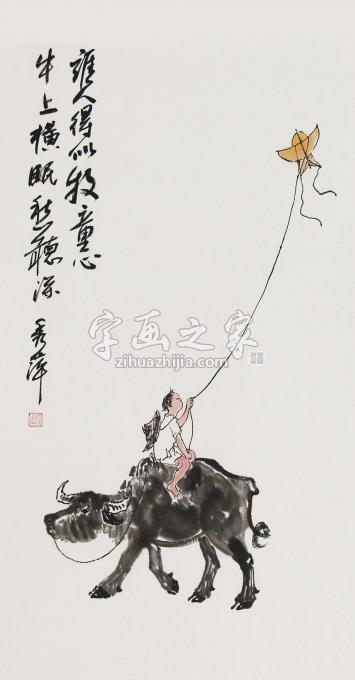 谁人得似牧童心
牛上横眠秋听深
秀萍
字画之家
zihuazhijia.com